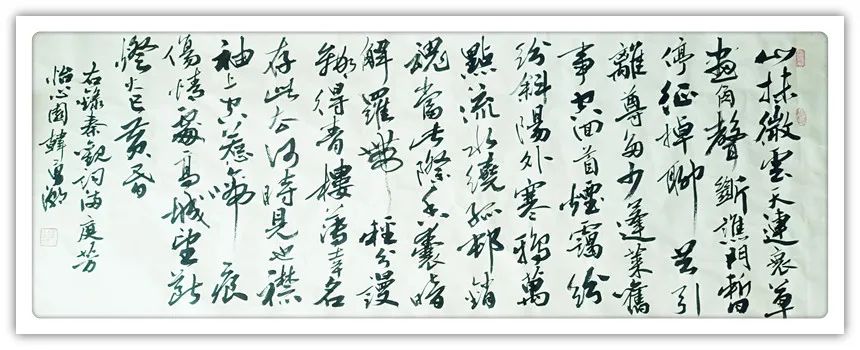 山抹微雲天連衰草
畫角聲斷譙門暫
停征棹聊共引
離尊多少蓬萊舊
事空回首煙靄紛
紛斜陽外寒鴉萬
點流水繞孤邨銷
魂當此際香囊暗
解羅帶輕分謾
贏得青樓薄幸名
存此去何時見也襟
袖上空惹啼痕
傷情處高城望斷
燈火已黃昏
右錄秦觀詞滿庭芳
怡心園韓